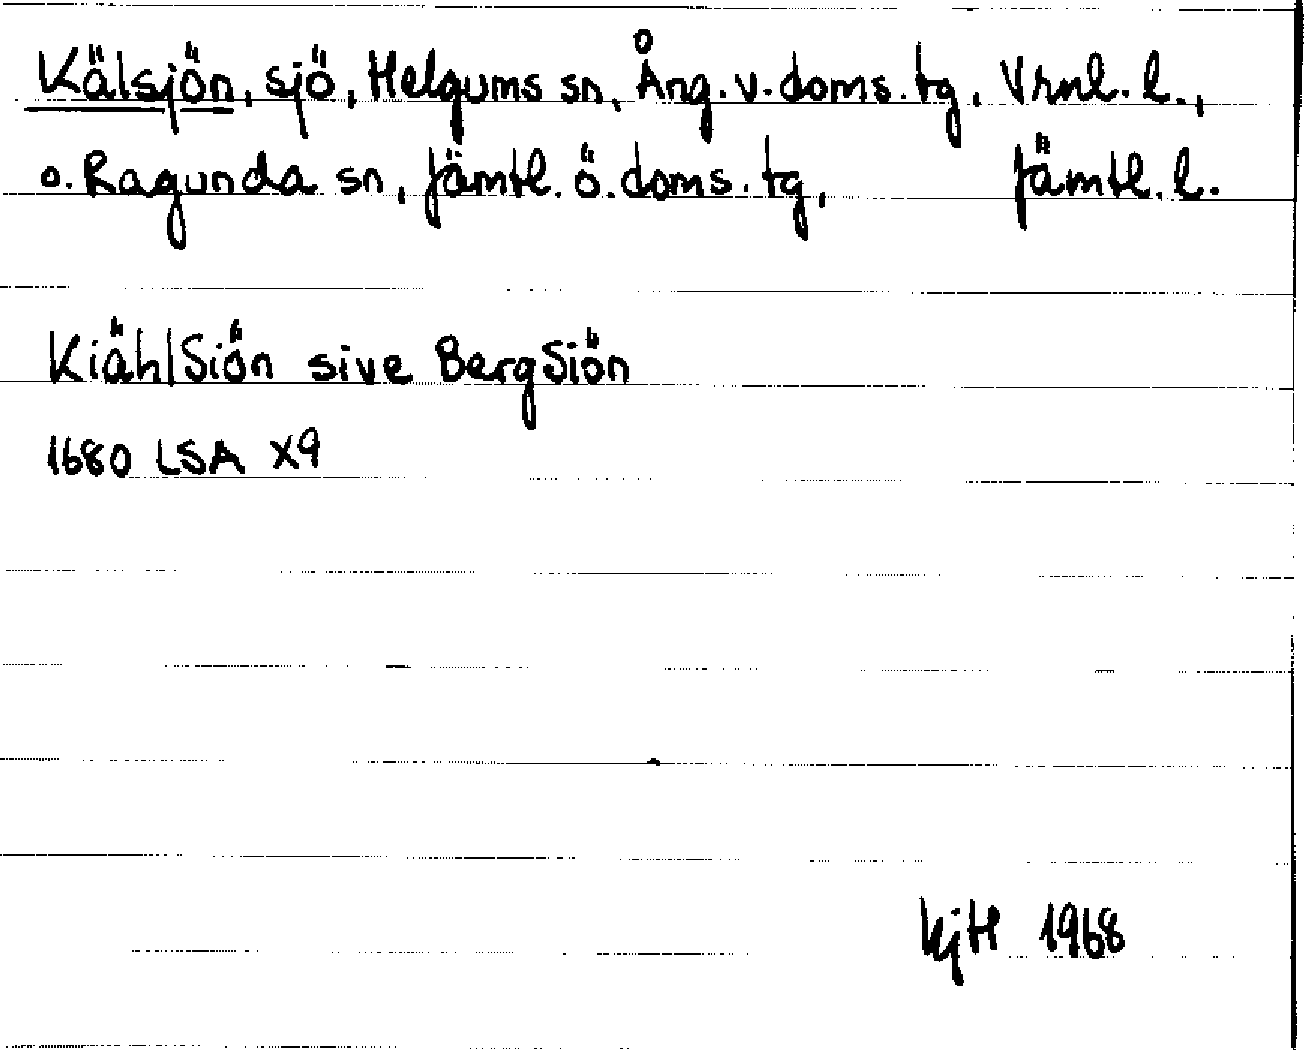 Kälsjön, sjö, Helgums sn, Ång. v. doms. tg, Vrnl. l.,
o. Ragunda sn, Jämtl. ö. doms. tg, Jämtl. l.
KiählSiön sive BergSiön
1680 LSA X9
KjH 1968